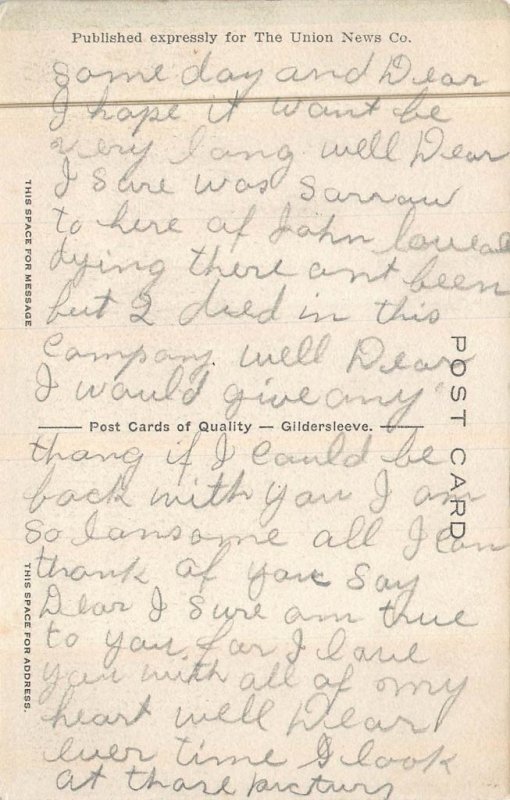 Published expressly for The Union News Co.
some day and Dear
I hope it want be
very long well Dear
I sure was sarrow
to here of John
dying there ant been
but 2 died in this
Company well Dear
I would give any
Post Cards of Quality — Gildersleeve.
thang if I could be
back with you I am
so lansome all I can
thank of you say
Dear I sure am true
to you far I love
you with all of my
heart well Dear
ever time I look
at those picturs
THIS SPACE FOR MESSAGE
THIS SPACE FOR ADDRESS.
POST CARD